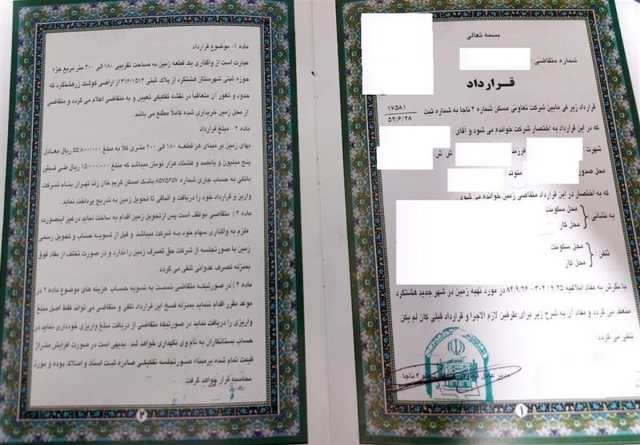 بسمه تعالی
شماره متقاضی
قرارداد
قرارداد زیر فی مابین شرکت تعاونی مسکن شماره ۲ ناجا به شماره ثبت ۱۷۵۸۱
۵۲/۶/۲۸
که در این قرارداد به اختصار شرکت خوانده می شود و آقای
شهرت فرزند ش ش
محل صدور متولد
که به اختصار در این قرارداد متقاضی زمین خوانده می شود
به نشانی محل سکونت
محل کار
تلفن محل سکونت
محل کار
با نگرش به مفاد ابلاغیه در مورد تهیه زمین در شهر جدید هشتگرد
منعقد می گردد و مفاد آن به شرح زیر برای طرفین لازم الاجرا و قرارداد قبلی کان لم یکن
تلقی می گردد.
۱
ماده ۱- موضوع قرارداد
عبارت است از واگذاری یک قطعه زمین به مساحت تقریبی ۱۸۰ الی ۲۰۰ متر مربع جزء
حوزه ثبتی شهرستان هشتگرد از پلاک ثبتی از اراضی کوشک زر هشتگرد که
حدود و ثغور آن متعاقباً در نقشه تفکیکی تعیین و به متقاضی اعلام می گردد و متقاضی
از محل زمین خریداری شده کاملا مطلع می باشد
ماده ۲ - مبلغ قرارداد
بهای زمین بر مبنای هر قطعه ۱۸۰ الی ۲۰۰ متری کلا به مبلغ ریال معادل
پنج میلیون و پانصد و هشتاد هزار تومان میباشد که مبلغ ریال طی فیش
بانکی به حساب جاری شماره بانک مسکن کریم خان زند تهران بنام شرکت
واریز و قرارداد خود را دریافت و الباقی تا تحویل زمین به تدریج پرداخت نماید.
ماده ۳ : متقاضی موظف است پس از تحویل زمین اقدام به ساخت نماید در غیر اینصورت
ملزم به واگذاری سهام خود به شرکت میباشد و قبل از تسویه حساب و تحویل رسمی
زمین با صورتجلسه از شرکت حق تصرف زمین را ندارد و در صورت تخلف از مفاد فوق
بمنزله تصرف عدوانی تلقی می گردد.
ماده ۴ : در صورتیکه متقاضی نسبت به تسویه حساب هزینه های موضوع ماده ۲ در
موعد مقرر اقدام ننماید بمنزله فسخ این قرارداد تلقی و متقاضی می تواند فقط اصل مبلغ
واریزی را دریافت نماید در صورتیکه متقاضی از دریافت مبلغ واریزی خودداری نماید در
حساب بستانکاران به نام وی نگهداری خواهد شد. بدیهی است در صورت افزایش متراژ
قیمت تمام شده بر مبناء صورتجلسه تفکیکی صادره ثبت اسناد و املاک بوده و مورد
محاسبه قرار خواهد گرفت
۲